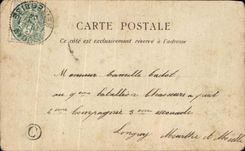 CARTE POSTALE
Ce côté est exclusivement réservé à l'adresse
Monsieur Camille
au 9eme bataillon Chasseurs à pied
2eme compagnie 3eme escouade
Longwy Meurthe et Moselle
C